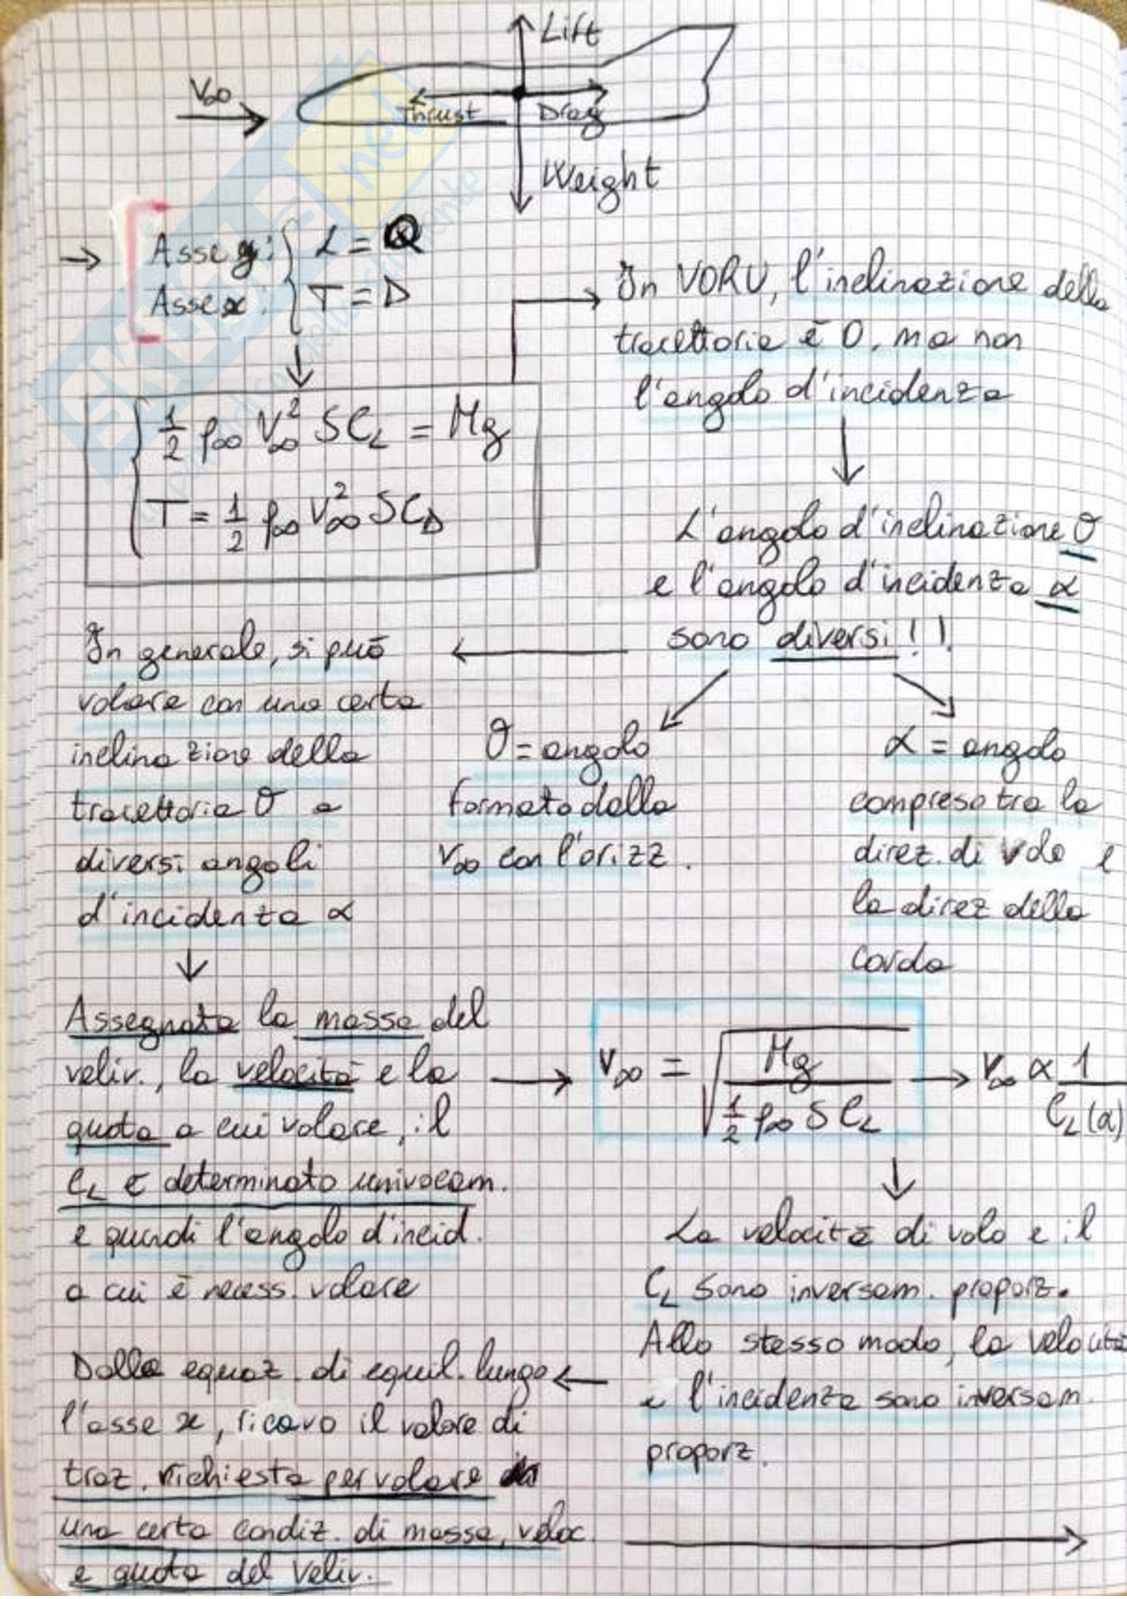 Lift
V∞
Thrust
Drag
Weight
→ Asse y: { L = Q
Asse x: { T = D
In VORU, l'inclinazione della
traiettoria è 0, ma non
l'angolo d'incidenza
½ ρ∞ V∞² S C_L = Mg
T = ½ ρ∞ V∞² S C_D
L'angolo d'inclinazione θ
e l'angolo d'incidenza α
sono diversi!!
In generale, si può
volare con una certa
inclinazione della
traiettoria θ a
diversi angoli
d'incidenza α
θ = angolo
formato dalla
V∞ con l'orizz.
α = angolo
compreso tra la
direz. di volo e
la direz della
corda
Assegnata la massa del
veliv., la velocità e la
quota a cui volare, il
C_L è determinato univocam.
e quindi l'angolo d'incid.
a cui è necess. volare
V∞ = √(Mg / ½ ρ∞ S C_L) → V∞ ∝ 1/C_L(α)
La velocità di volo e il
C_L sono inversam. proporz.
Allo stesso modo, la velocità
e l'incidenza sono inversam.
proporz.
Dalla equaz. di equil. lungo
l'asse x, ricavo il valore di
traz. richiesta per volare in
una certa condiz. di massa, veloc.
e quota del veliv.